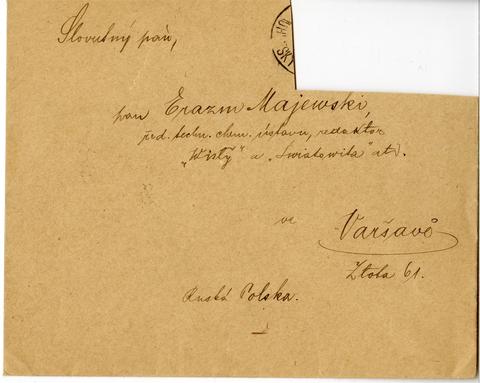 Slovutný pán,
pan Erazm Majewski,
řed. techn. chem. ústavu, redaktor
„Wisły" a „Swiatowita" atd.
ve
Varšavě
Złota 61.
Ruská Polska.